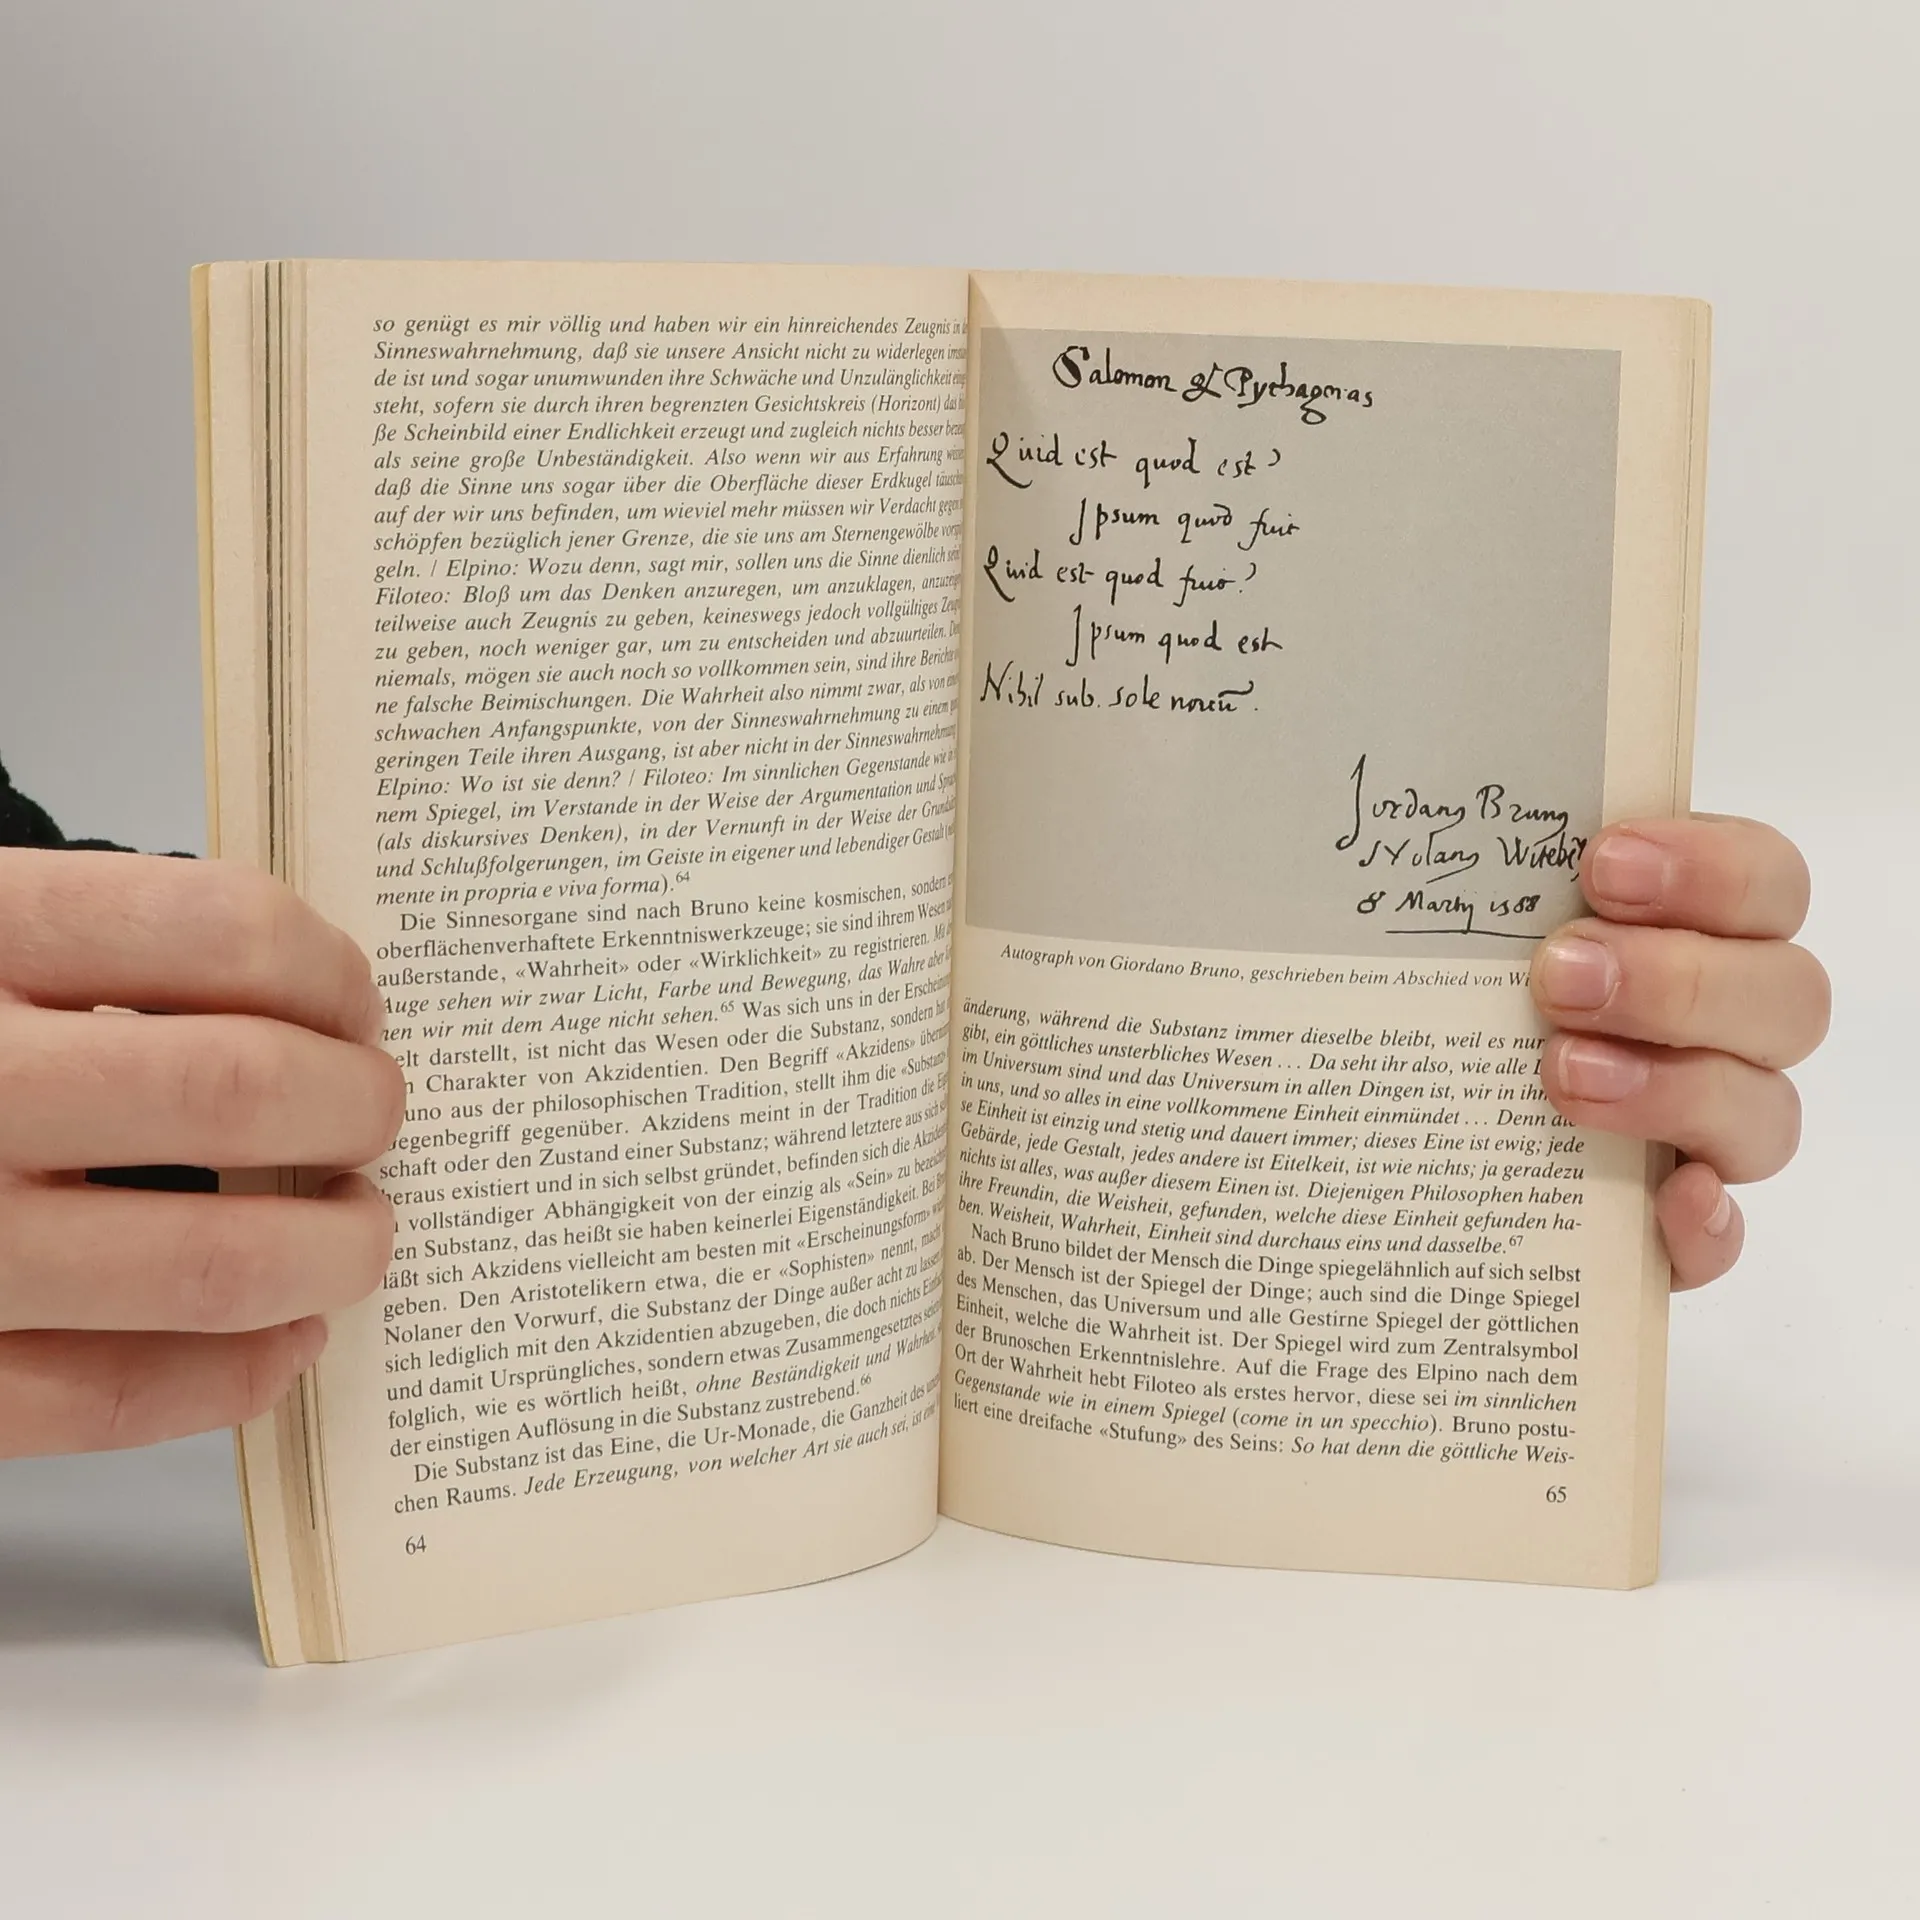 so genügt es mir völlig und haben wir ein hinreichendes Zeugnis in
Sinneswahrnehmung, daß sie unsere Ansicht nicht zu widerlegen
de ist und sogar unumwunden ihre Schwäche und Unzulänglichkeit
steht, sofern sie durch ihren begrenzten Gesichtskreis (Horizont) das
ße Scheinbild einer Endlichkeit erzeugt und zugleich nichts besser
als seine große Unbeständigkeit. Also wenn wir aus Erfahrung
daß die Sinne uns sogar über die Oberfläche dieser Erdkugel
auf der wir uns befinden, um wieviel mehr müssen wir Verdacht
schöpfen bezüglich jener Grenze, die sie uns am Sternengewölbe
geln. / Elpino: Wozu denn, sagt mir, sollen uns die Sinne dienlich
Filoteo: Bloß um das Denken anzuregen, um anzuklagen,
teilweise auch Zeugnis zu geben, keineswegs jedoch vollgültiges
zu geben, noch weniger gar, um zu entscheiden und abzuurteilen.
niemals, mögen sie auch noch so vollkommen sein, sind ihre
ne falsche Beimischungen. Die Wahrheit also nimmt zwar, als von
schwachen Anfangspunkte, von der Sinneswahrnehmung zu einem
geringen Teile ihren Ausgang, ist aber nicht in der Sinneswahrnehmung
Elpino: Wo ist sie denn? / Filoteo: Im sinnlichen Gegenstande wie
nem Spiegel, im Verstande in der Weise der Argumentation und
(als diskursives Denken), in der Vernunft in der Weise der
und Schlußfolgerungen, im Geiste in eigener und lebendiger Gestalt
mente in propria e viva forma).64
Die Sinnesorgane sind nach Bruno keine kosmischen, sondern
oberflächenverhaftete Erkenntniswerkzeuge; sie sind ihrem Wesen
außerstande, «Wahrheit» oder «Wirklichkeit» zu registrieren.
Auge sehen wir zwar Licht, Farbe und Bewegung, das Wahre aber
nen wir mit dem Auge nicht sehen.65 Was sich uns in der
elt darstellt, ist nicht das Wesen oder die Substanz, sondern
n Charakter von Akzidentien. Den Begriff «Akzidens»
uno aus der philosophischen Tradition, stellt ihm die «Substanz»
egenbegriff gegenüber. Akzidens meint in der Tradition die
schaft oder den Zustand einer Substanz; während letztere aus sich
heraus existiert und in sich selbst gründet, befinden sich die
vollständiger Abhängigkeit von der einzig als «Sein» zu
en Substanz, das heißt sie haben keinerlei Eigenständigkeit. Bei
läßt sich Akzidens vielleicht am besten mit «Erscheinungsform»
geben. Den Aristotelikern etwa, die er «Sophisten» nennt, macht
Nolaner den Vorwurf, die Substanz der Dinge außer acht zu lassen
sich lediglich mit den Akzidentien abzugeben, die doch nichts
und damit Ursprüngliches, sondern etwas Zusammengesetztes
folglich, wie es wörtlich heißt, ohne Beständigkeit und Wahrheit
der einstigen Auflösung in die Substanz zustrebend.66
Die Substanz ist das Eine, die Ur-Monade, die Ganzheit des
chen Raums. Jede Erzeugung, von welcher Art sie auch sei, ist
64
Salomon et Pythagoras
Quid est quod est?
Ipsum quod fuit
Quid est quod fuit?
Ipsum quod est
Nihil sub. sole novū.
Jordanus Brunus
Nolanus Witeb
8 Martij 1588
Autograph von Giordano Bruno, geschrieben beim Abschied von Wi
änderung, während die Substanz immer dieselbe bleibt, weil es nur
gibt, ein göttliches unsterbliches Wesen ... Da seht ihr also, wie alle
im Universum sind und das Universum in allen Dingen ist, wir in ihm
in uns, und so alles in eine vollkommene Einheit einmündet ... Denn
se Einheit ist einzig und stetig und dauert immer; dieses Eine ist ewig; jede
Gebärde, jede Gestalt, jedes andere ist Eitelkeit, ist wie nichts; ja geradezu
nichts ist alles, was außer diesem Einen ist. Diejenigen Philosophen haben
ihre Freundin, die Weisheit, gefunden, welche diese Einheit gefunden ha-
ben. Weisheit, Wahrheit, Einheit sind durchaus eins und dasselbe.67
Nach Bruno bildet der Mensch die Dinge spiegelähnlich auf sich selbst
ab. Der Mensch ist der Spiegel der Dinge; auch sind die Dinge Spiegel
des Menschen, das Universum und alle Gestirne Spiegel der göttlichen
Einheit, welche die Wahrheit ist. Der Spiegel wird zum Zentralsymbol
der Brunoschen Erkenntnislehre. Auf die Frage des Elpino nach dem
Ort der Wahrheit hebt Filoteo als erstes hervor, diese sei im sinnlichen
Gegenstande wie in einem Spiegel (come in un specchio). Bruno postu-
liert eine dreifache «Stufung» des Seins: So hat denn die göttliche Weis-
65